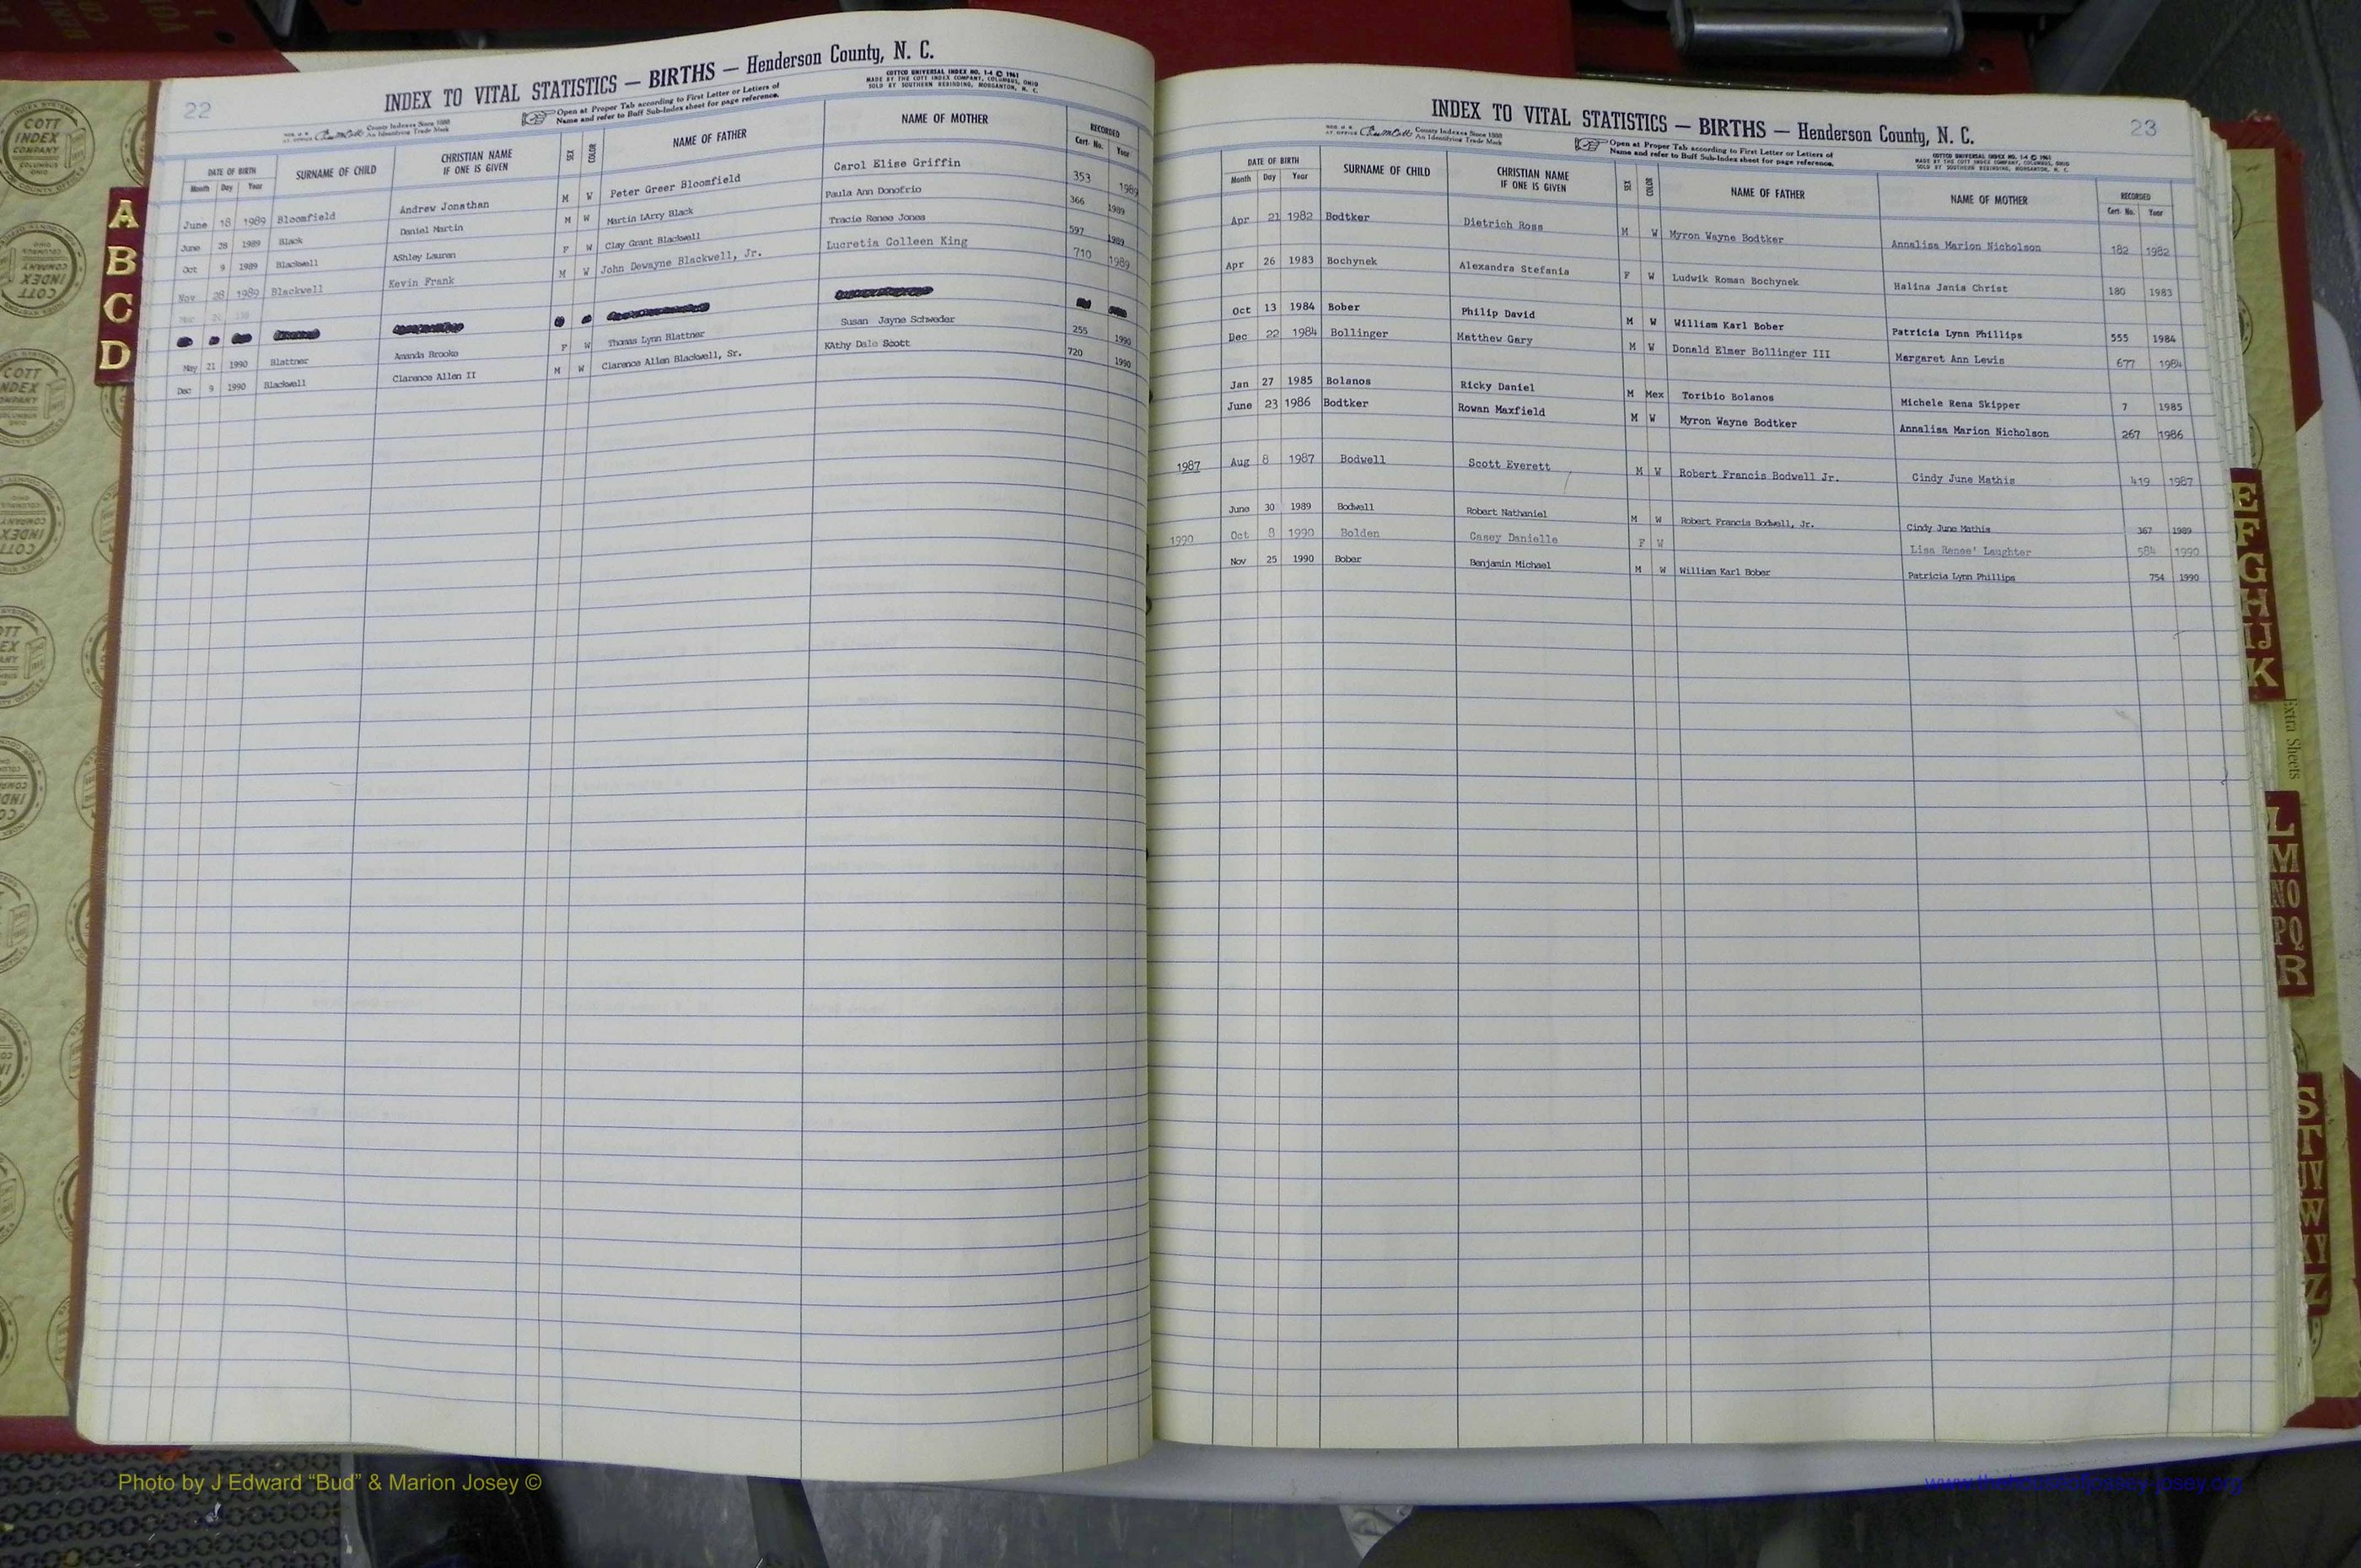 22
INDEX TO VITAL STATISTICS — BIRTHS — Henderson County, N. C.
COTTCO UNIVERSAL INDEX NO. 1-4 © 1961
MADE BY THE COTT INDEX COMPANY, COLUMBUS, OHIO
SOLD BY SOUTHERN REBINDING, MORGANTON, N. C.
County Indexes Since 1888
An Identifying Trade Mark
Open at Proper Tab according to First Letter or Letters of
Name and refer to Buff Sub-Index sheet for page reference.
DATE OF BIRTH SURNAME OF CHILD CHRISTIAN NAME IF ONE IS GIVEN SEX COLOR NAME OF FATHER NAME OF MOTHER RECORDED
Month Day Year Cert. No. Year
June 18 1989 Bloomfield Andrew Jonathan M W Peter Greer Bloomfield Carol Elise Griffin 353 1989
June 28 1989 Black Daniel Martin M W Martin LArry Black Paula Ann Donofrio 366 1989
Oct 9 1989 Blackwell AShley Lauren F W Clay Grant Blackwell Tracie Renee Jones 597 1989
Nov 28 1989 Blackwell Kevin Frank M W John Dewayne Blackwell, Jr. Lucretia Colleen King 710 1989
May 21 1990 Blattner Amanda Brooke F W Thomas Lynn Blattner Susan Jayne Schweder 255 1990
Dec 9 1990 Blackwell Clarence Allen II M W Clarence Allen Blackwell, Sr. KAthy Dale Scott 720 1990
INDEX TO VITAL STATISTICS — BIRTHS — Henderson County, N. C.
23
COTTCO UNIVERSAL INDEX NO. 1-4 © 1961
MADE BY THE COTT INDEX COMPANY, COLUMBUS, OHIO
SOLD BY SOUTHERN REBINDING, MORGANTON, N. C.
County Indexes Since 1888
An Identifying Trade Mark
Open at Proper Tab according to First Letter or Letters of
Name and refer to Buff Sub-Index sheet for page reference.
DATE OF BIRTH SURNAME OF CHILD CHRISTIAN NAME IF ONE IS GIVEN SEX COLOR NAME OF FATHER NAME OF MOTHER RECORDED
Month Day Year Cert. No. Year
Apr 21 1982 Bodtker Dietrich Ross M W Myron Wayne Bodtker Annalisa Marion Nicholson 182 1982
Apr 26 1983 Bochynek Alexandra Stefania F W Ludwik Roman Bochynek Halina Jania Christ 180 1983
Oct 13 1984 Bober Philip David M W William Karl Bober Patricia Lynn Phillips 555 1984
Dec 22 1984 Bollinger Matthew Gary M W Donald Elmer Bollinger III Margaret Ann Lewis 677 1984
Jan 27 1985 Bolanos Ricky Daniel M Mex Toribio Bolanos Michele Rena Skipper 7 1985
June 23 1986 Bodtker Rowan Maxfield M W Myron Wayne Bodtker Annalisa Marion Nicholson 267 1986
1987 Aug 8 1987 Bodwell Scott Everett M W Robert Francis Bodwell Jr. Cindy June Mathis 419 1987
June 30 1989 Bodwell Robert Nathaniel M W Robert Francis Bodwell, Jr. Cindy June Mathis 367 1989
1990 Oct 8 1990 Bolden Casey Danielle F W Lisa Renee' Laughter 584 1990
Nov 25 1990 Bober Benjamin Michael M W William Karl Bober Patricia Lynn Phillips 754 1990
A
B
C
D
E
F
G
H
IJ
K
Extra Sheets
L
M
NO
PQ
R
S
T
UV
W
XY
Z
COTT
INDEX
COMPANY
COLUMBUS
OHIO
Photo by J Edward “Bud” & Marion Josey ©
www.thehouseofjossey-josey.org